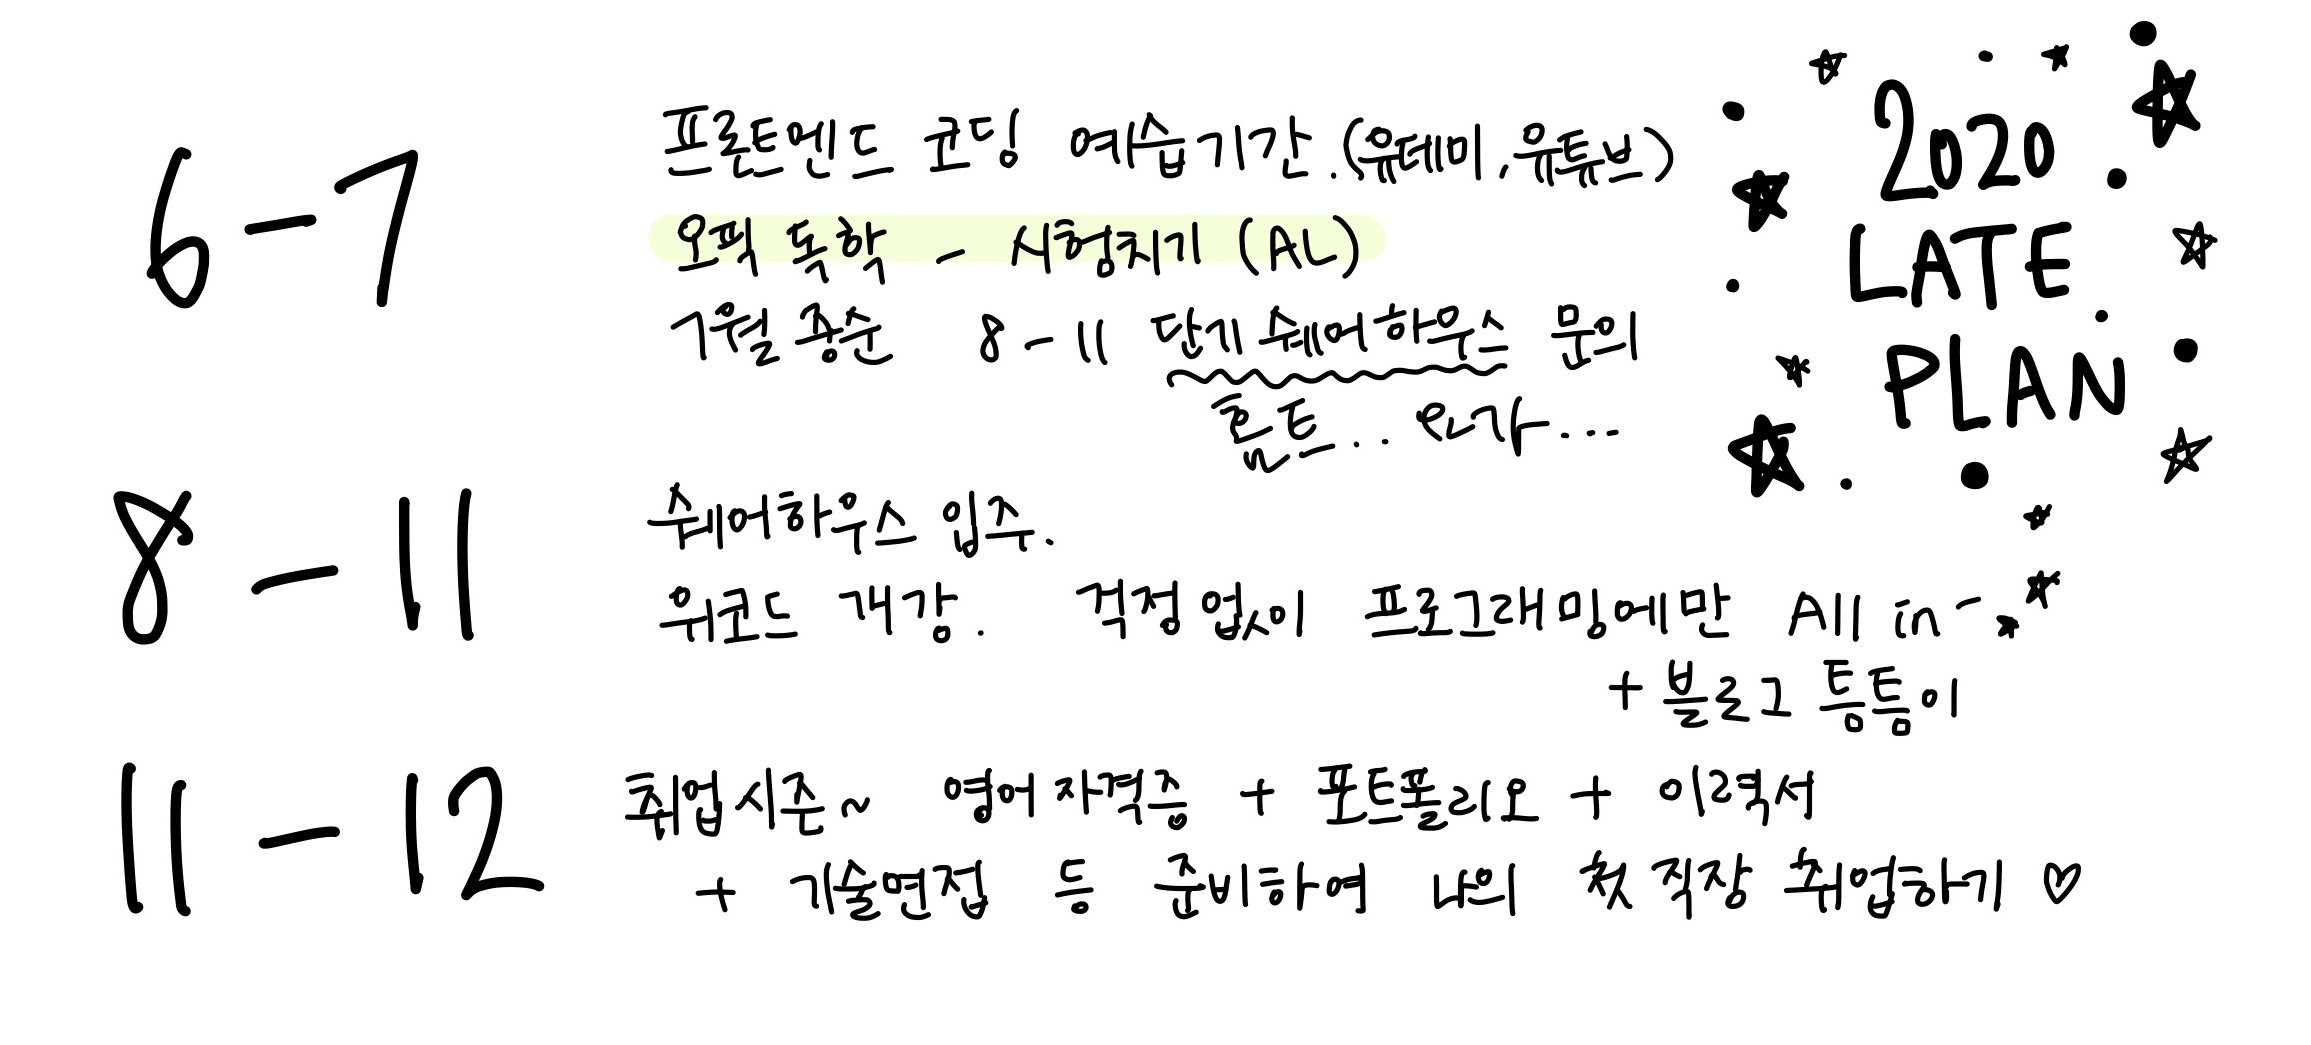 2020
LATE
PLAN
6-7
프론트엔드 코딩 예습기간.(유데미, 유튜브)
오픽 독학 - 시험치기 (AL)
7월 중순 8-11 단기 쉐어하우스 문의
홈트.. 요가...
8-11
쉐어하우스 입주.
위코드 개강. 걱정 없이 프로그래밍에만 All in-
+ 블로그 틈틈이
11-12
취업시즌~ 영어자격증 + 포트폴리오 + 이력서
+ 기술면접 등 준비하여 나의 첫 직장 취업하기 ♡